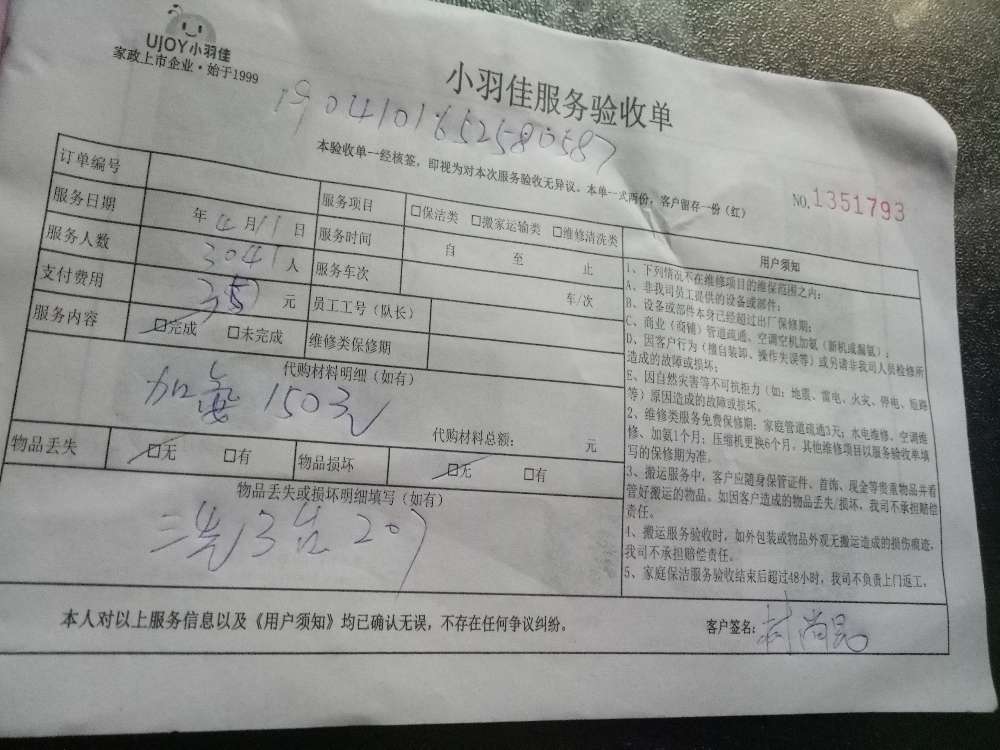 UjOY小羽佳
家政上市企业·始于1999
小羽佳服务验收单
1904101652580587
本验收单一经核签，即视为对本次服务验收无异议。本单一式两份，客户留存一份（红）
NO.1351793
订单编号
服务项目 □保洁类 □搬家运输类 □维修清洗类
服务日期 年 4月11日
服务时间 自 至 止
服务人数 3041人
服务车次 车/次
支付费用 元
员工工号（队长）
服务内容 □完成 □未完成
维修类保修期
代购材料明细（如有）
加氨 150元
代购材料总额： 元
物品丢失 □无 □有
物品损坏 □无 □有
物品丢失或损坏明细填写（如有）
用户须知
1、下列情况不在维修项目的维保范围之内：
A、非我司员工提供的设备或部件；
B、设备或部件本身已经超过出厂保修期；
C、商业（商铺）管道疏通、空调空机加氨（新机或漏氨）；
D、因客户行为（擅自装卸、操作失误等）或另请非我司人员检修所
造成的故障或损坏；
E、因自然灾害等不可抗力（如：地震、雷电、火灾、停电、短路
等）原因造成的故障或损坏。
2、维修类服务免费保修期：家庭管道疏通3天；水电维修、空调维
修、加氨1个月；压缩机更换6个月，其他维修项目以服务验收单填
写的保修期为准。
3、搬运服务中，客户应随身保管证件、首饰、现金等贵重物品并看
管好搬运的物品。如因客户造成的物品丢失/损坏，我司不承担赔偿
责任。
4、搬运服务验收时，如外包装或物品外观无搬运造成的损伤痕迹，
我司不承担赔偿责任。
5、家庭保洁服务验收结束后超过48小时，我司不负责上门返工。
本人对以上服务信息以及《用户须知》均已确认无误，不存在任何争议纠纷。
客户签名：